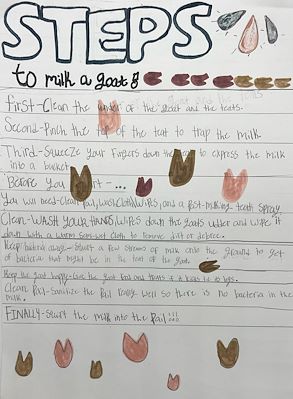 STEPS
to milk a goat
First-Clean the udder of the goat and the teats.
Second-Pinch the top of the teat to trap the milk
Third-Squeeze your Fingers down the teat to express the milk
into a bucket
Before you start-...
You will need-Clean pail, washcloth/wipes, and a post-milking teat spray.
Clean-WASH YOUR HANDS, WIPES down the goats udder and wipe it
down with a warm damp wet cloth to remove dirt or debree.
Keep bacteria away-Squirt a few streams of milk onto the ground to get
of bacteria that might be in the teat of the goat.
Keep the goat happy-Give the goat food and treats if it kicks tie its legs.
Clean Pail-Sanitize the Pail really well so there is no bacteria in the
milk.
FINALLY-Squirt the milk into the Pail!!!